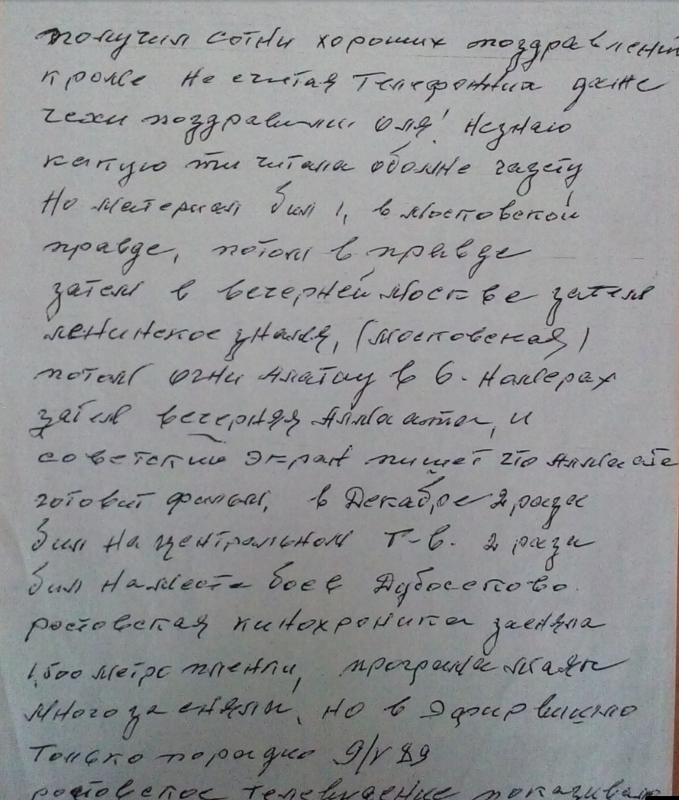 получил сотни хороших поздравлений
кроме не считая Телефонних даже
чехи поздравили Оля! незнаю
какую ти читала обомне газету
Но материал бил 1, в московской
правде, потом в правде
затем в вечерней москве затем
ленинское знамя, (московская)
потом огни Алатау в 6. номерах
затем вечерняя Алмаата, и
советский экран пишет что Алмаата
готовит фильм, в Декабре 2 раза
бил на центральном Т-в. 2 раза
бил на месте боев Дубосеково.
ростовская кинохроника засняла
1,500 метро пленки, програма маяк
много засняли, но в Эфир вишло
Только по радио 9/V 89
ростовское телевидение показивало